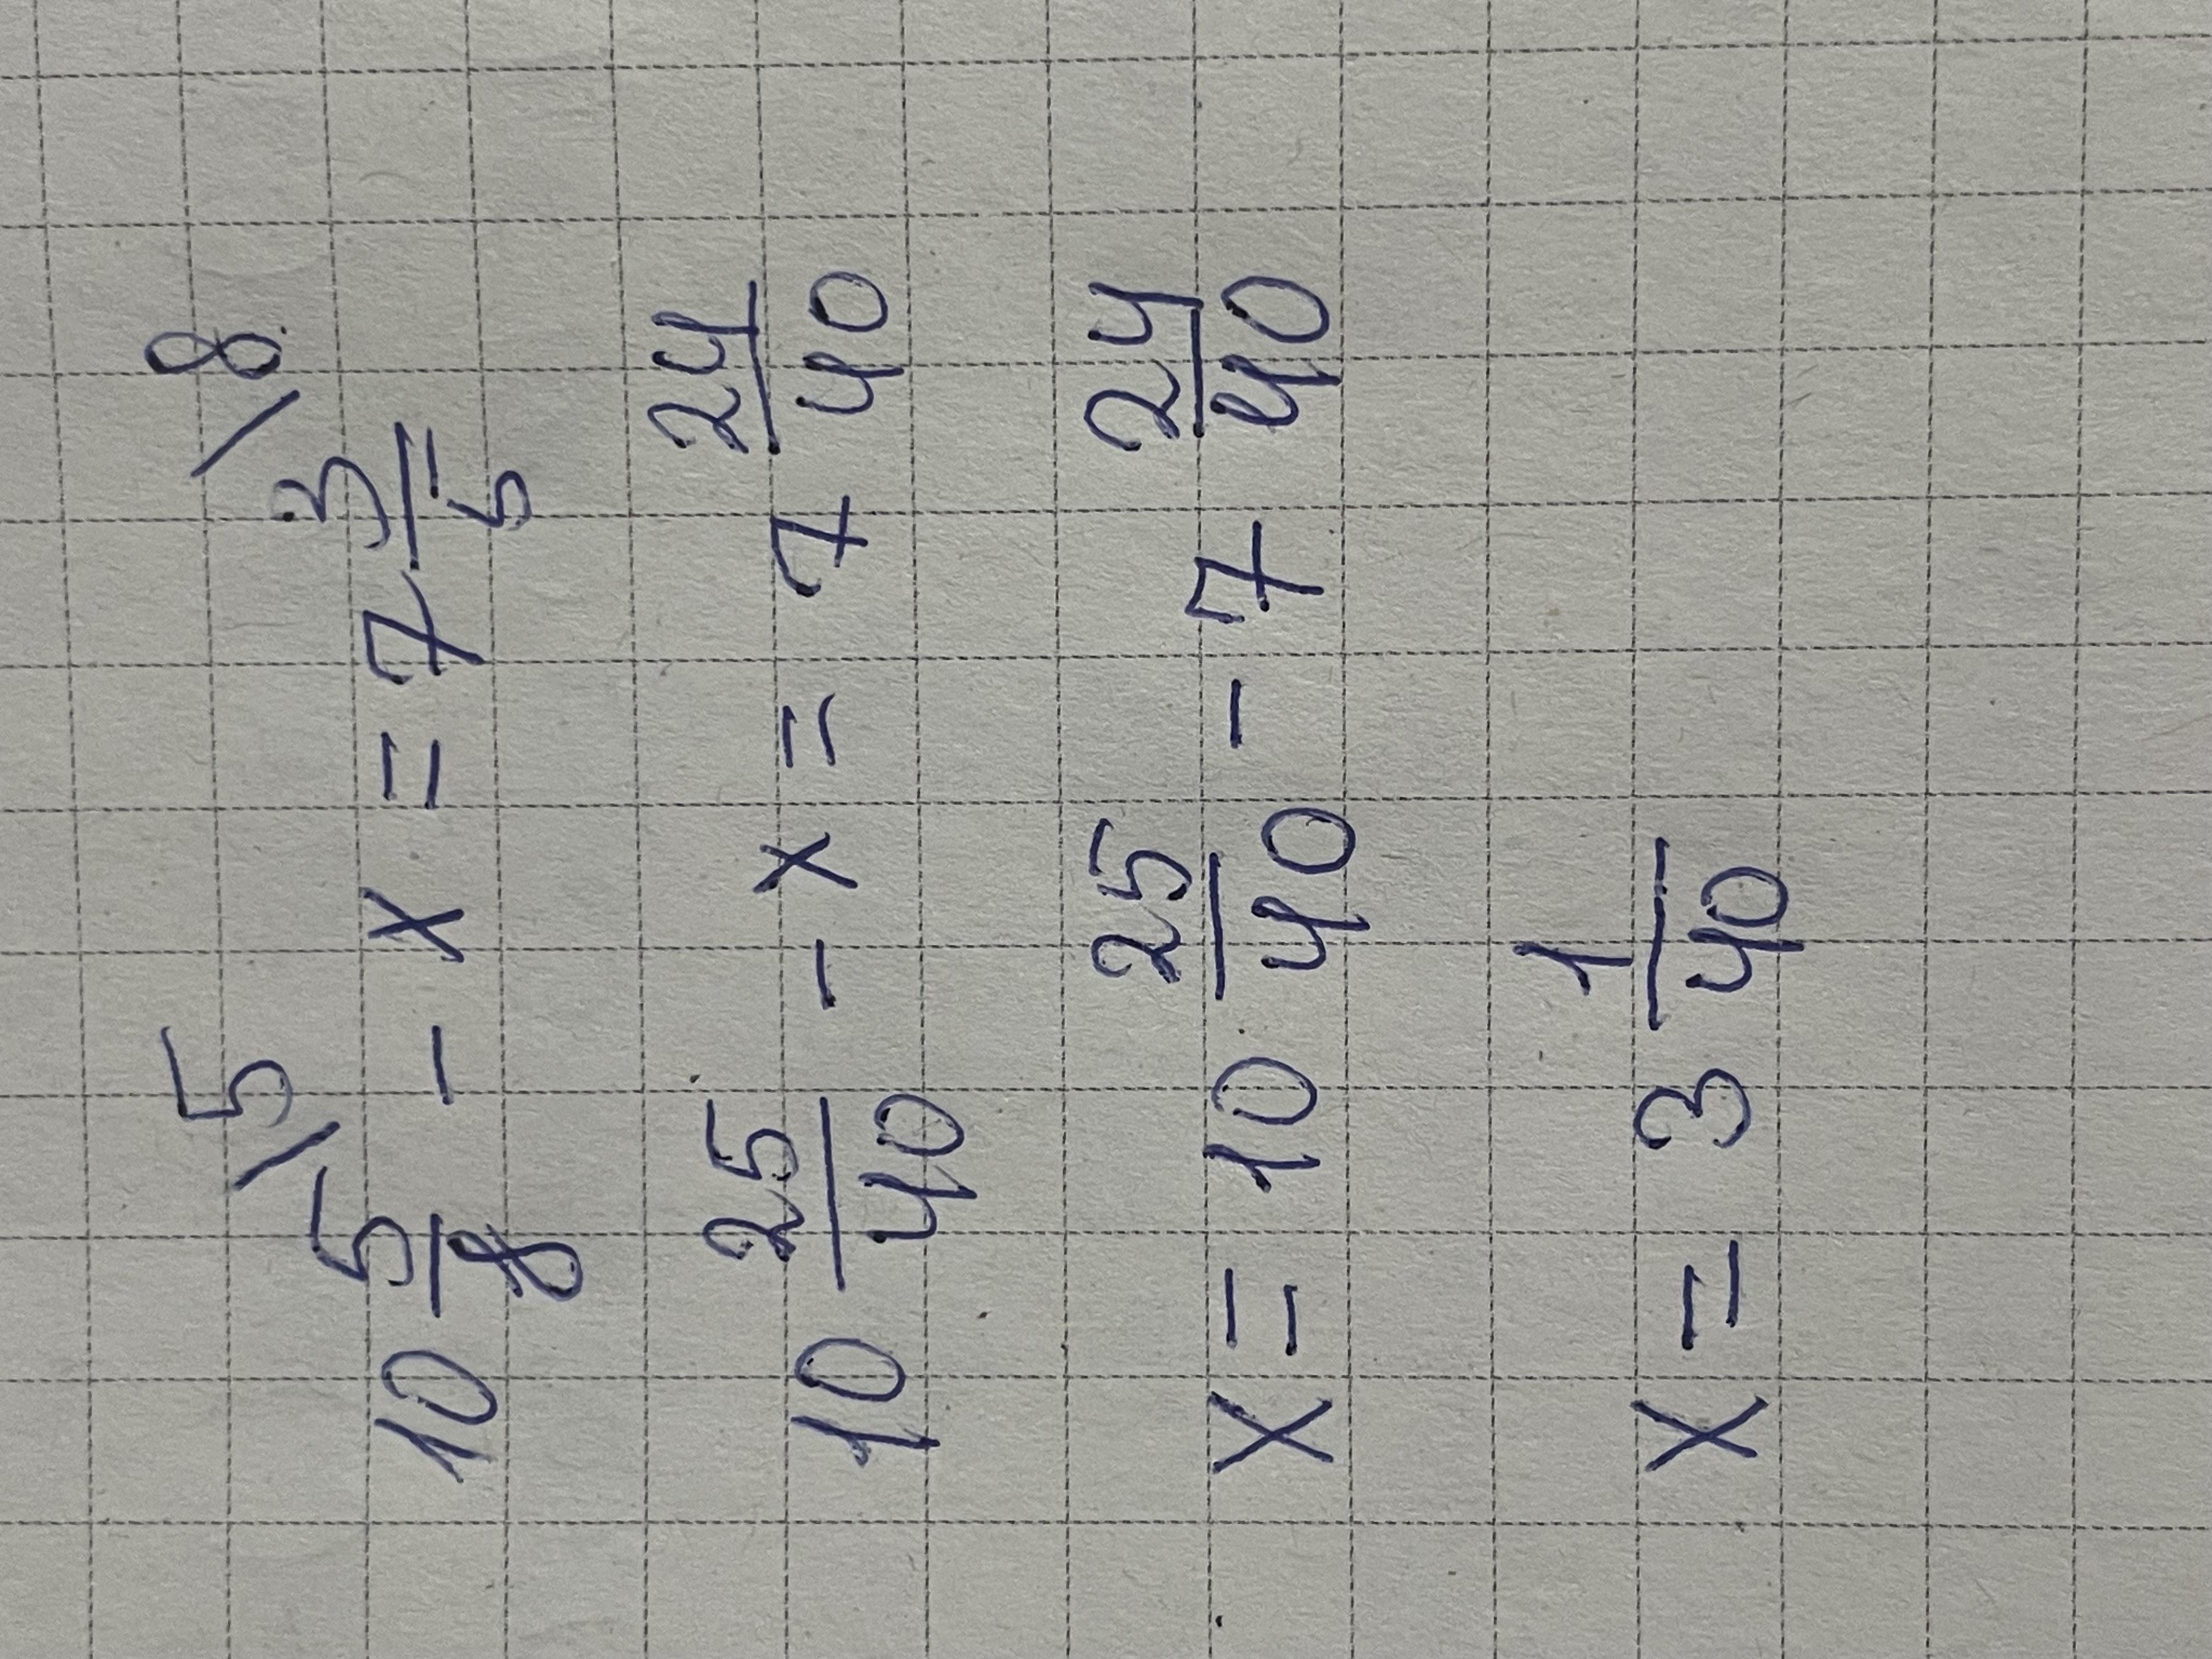 10 5/8 \5 - x = 7 3/5 \8
10 25/40 - x = 7 24/40
x = 10 25/40 - 7 24/40
x = 3 1/40